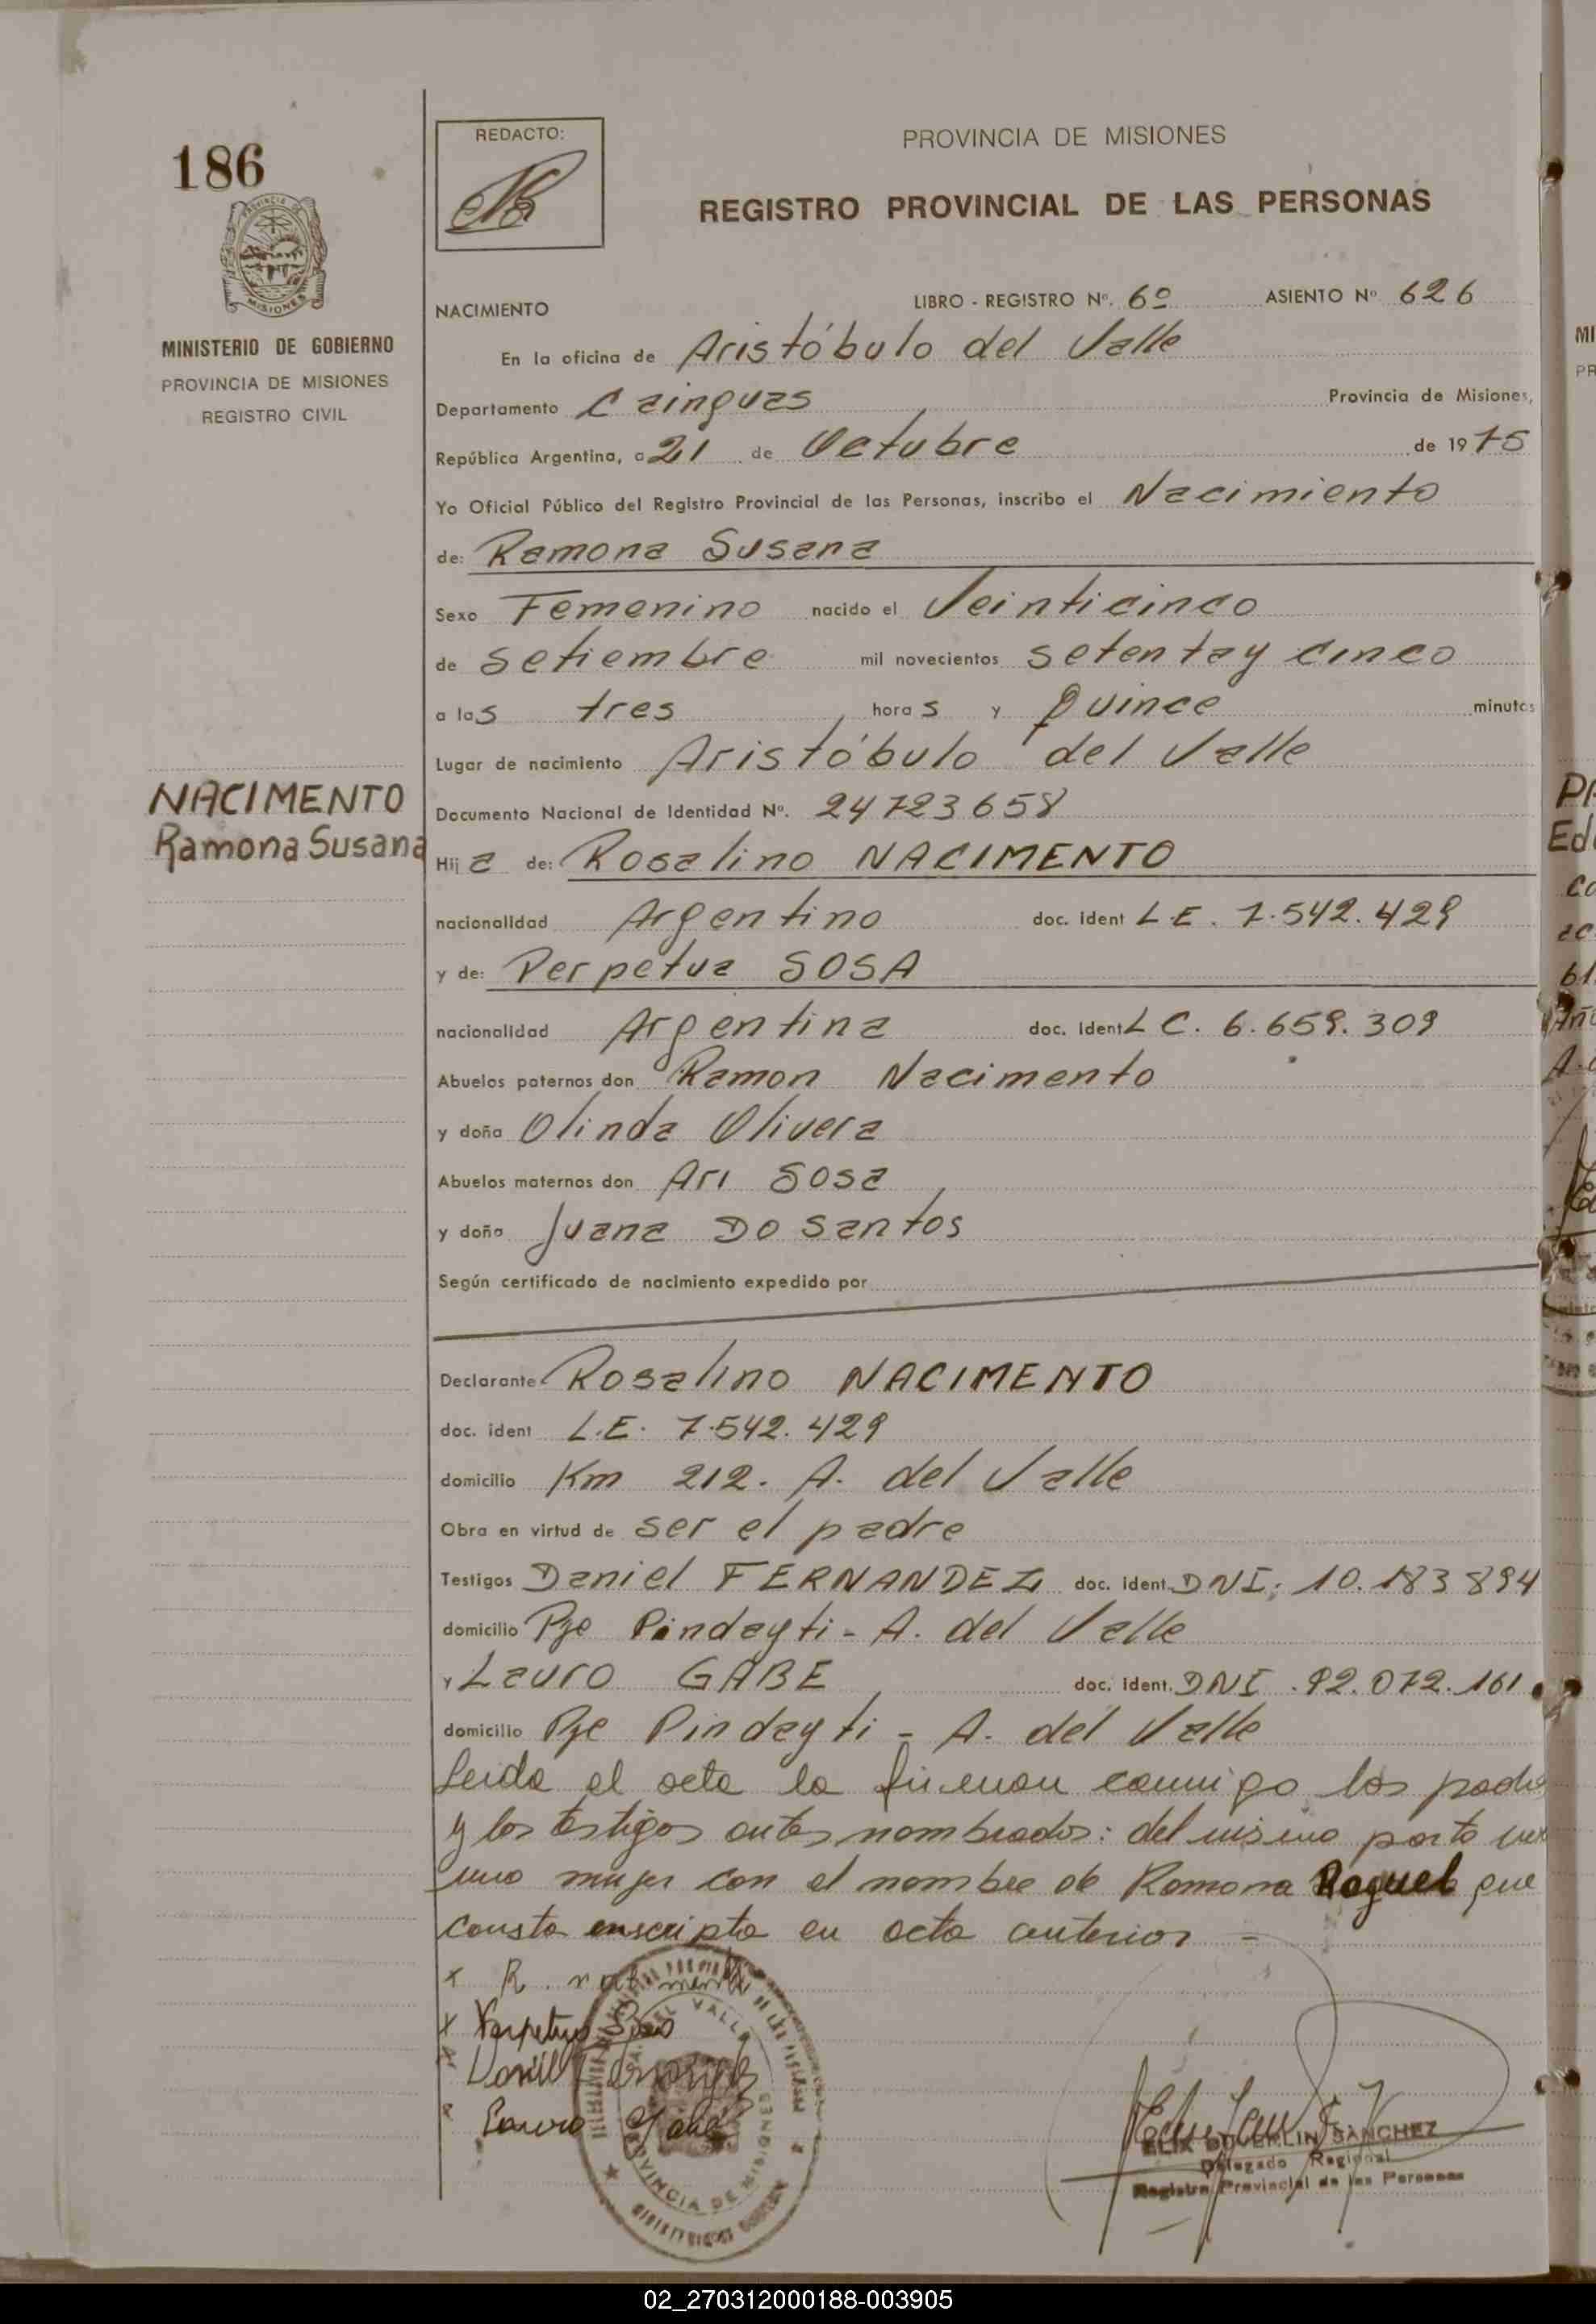 186
REDACTO:
PROVINCIA DE MISIONES
REGISTRO PROVINCIAL DE LAS PERSONAS
MINISTERIO DE GOBIERNO
PROVINCIA DE MISIONES
REGISTRO CIVIL
NACIMIENTO LIBRO - REGISTRO Nº. 6º ASIENTO Nº 626
En la oficina de Aristóbulo del Valle
Departamento Cainguas Provincia de Misiones,
República Argentina, a 21 de Octubre de 1975
Yo Oficial Público del Registro Provincial de las Personas, inscribo el Nacimiento
de: Ramona Susana
Sexo Femenino nacido el Veinticinco
de setiembre mil novecientos setentay cinco
a las tres horas y quince minutos
Lugar de nacimiento Aristóbulo del Valle
NACIMENTO
Ramona Susana
Documento Nacional de Identidad Nº. 24723658
Hija de: Rosalino NACIMENTO
nacionalidad Argentino doc. ident L.E. 7.542.429
y de: Perpetua SOSA
nacionalidad Argentina doc. Ident L C. 6.659.309
Abuelos paternos don Ramon Nacimento
y doña Olinda Olivera
Abuelos maternos don Ari Sosa
y doña Juana Do Santos
Según certificado de nacimiento expedido por
Declarante Rosalino NACIMENTO
doc. ident L.E. 7.542.429
domicilio Km 212. A. del Valle
Obra en virtud de ser el padre
Testigos Daniel FERNANDEZ doc. ident. DNI: 10.183894
domicilio Pje Pindayti - A. del Valle
y Lauro GABE doc. Ident. DNI .92.072.161
domicilio Pje Pindayti - A. del Valle
Leida el acta la firman conmigo los padres
y los testigos antes nombrados: del mismo parto
una mujer con el nombre de Ramona Raquel que
consta enscripta en acta anterior -
x R. nacimento
x Perpetua Sosa
x Daniel Fernandez
Lauro Gabe
DEL VALLE
PROVINCIA DE MISIONES
ELIX DOVERLIN SANCHEZ
Delegado Regional
Registro Provincial de las Personas
02_270312000188-003905